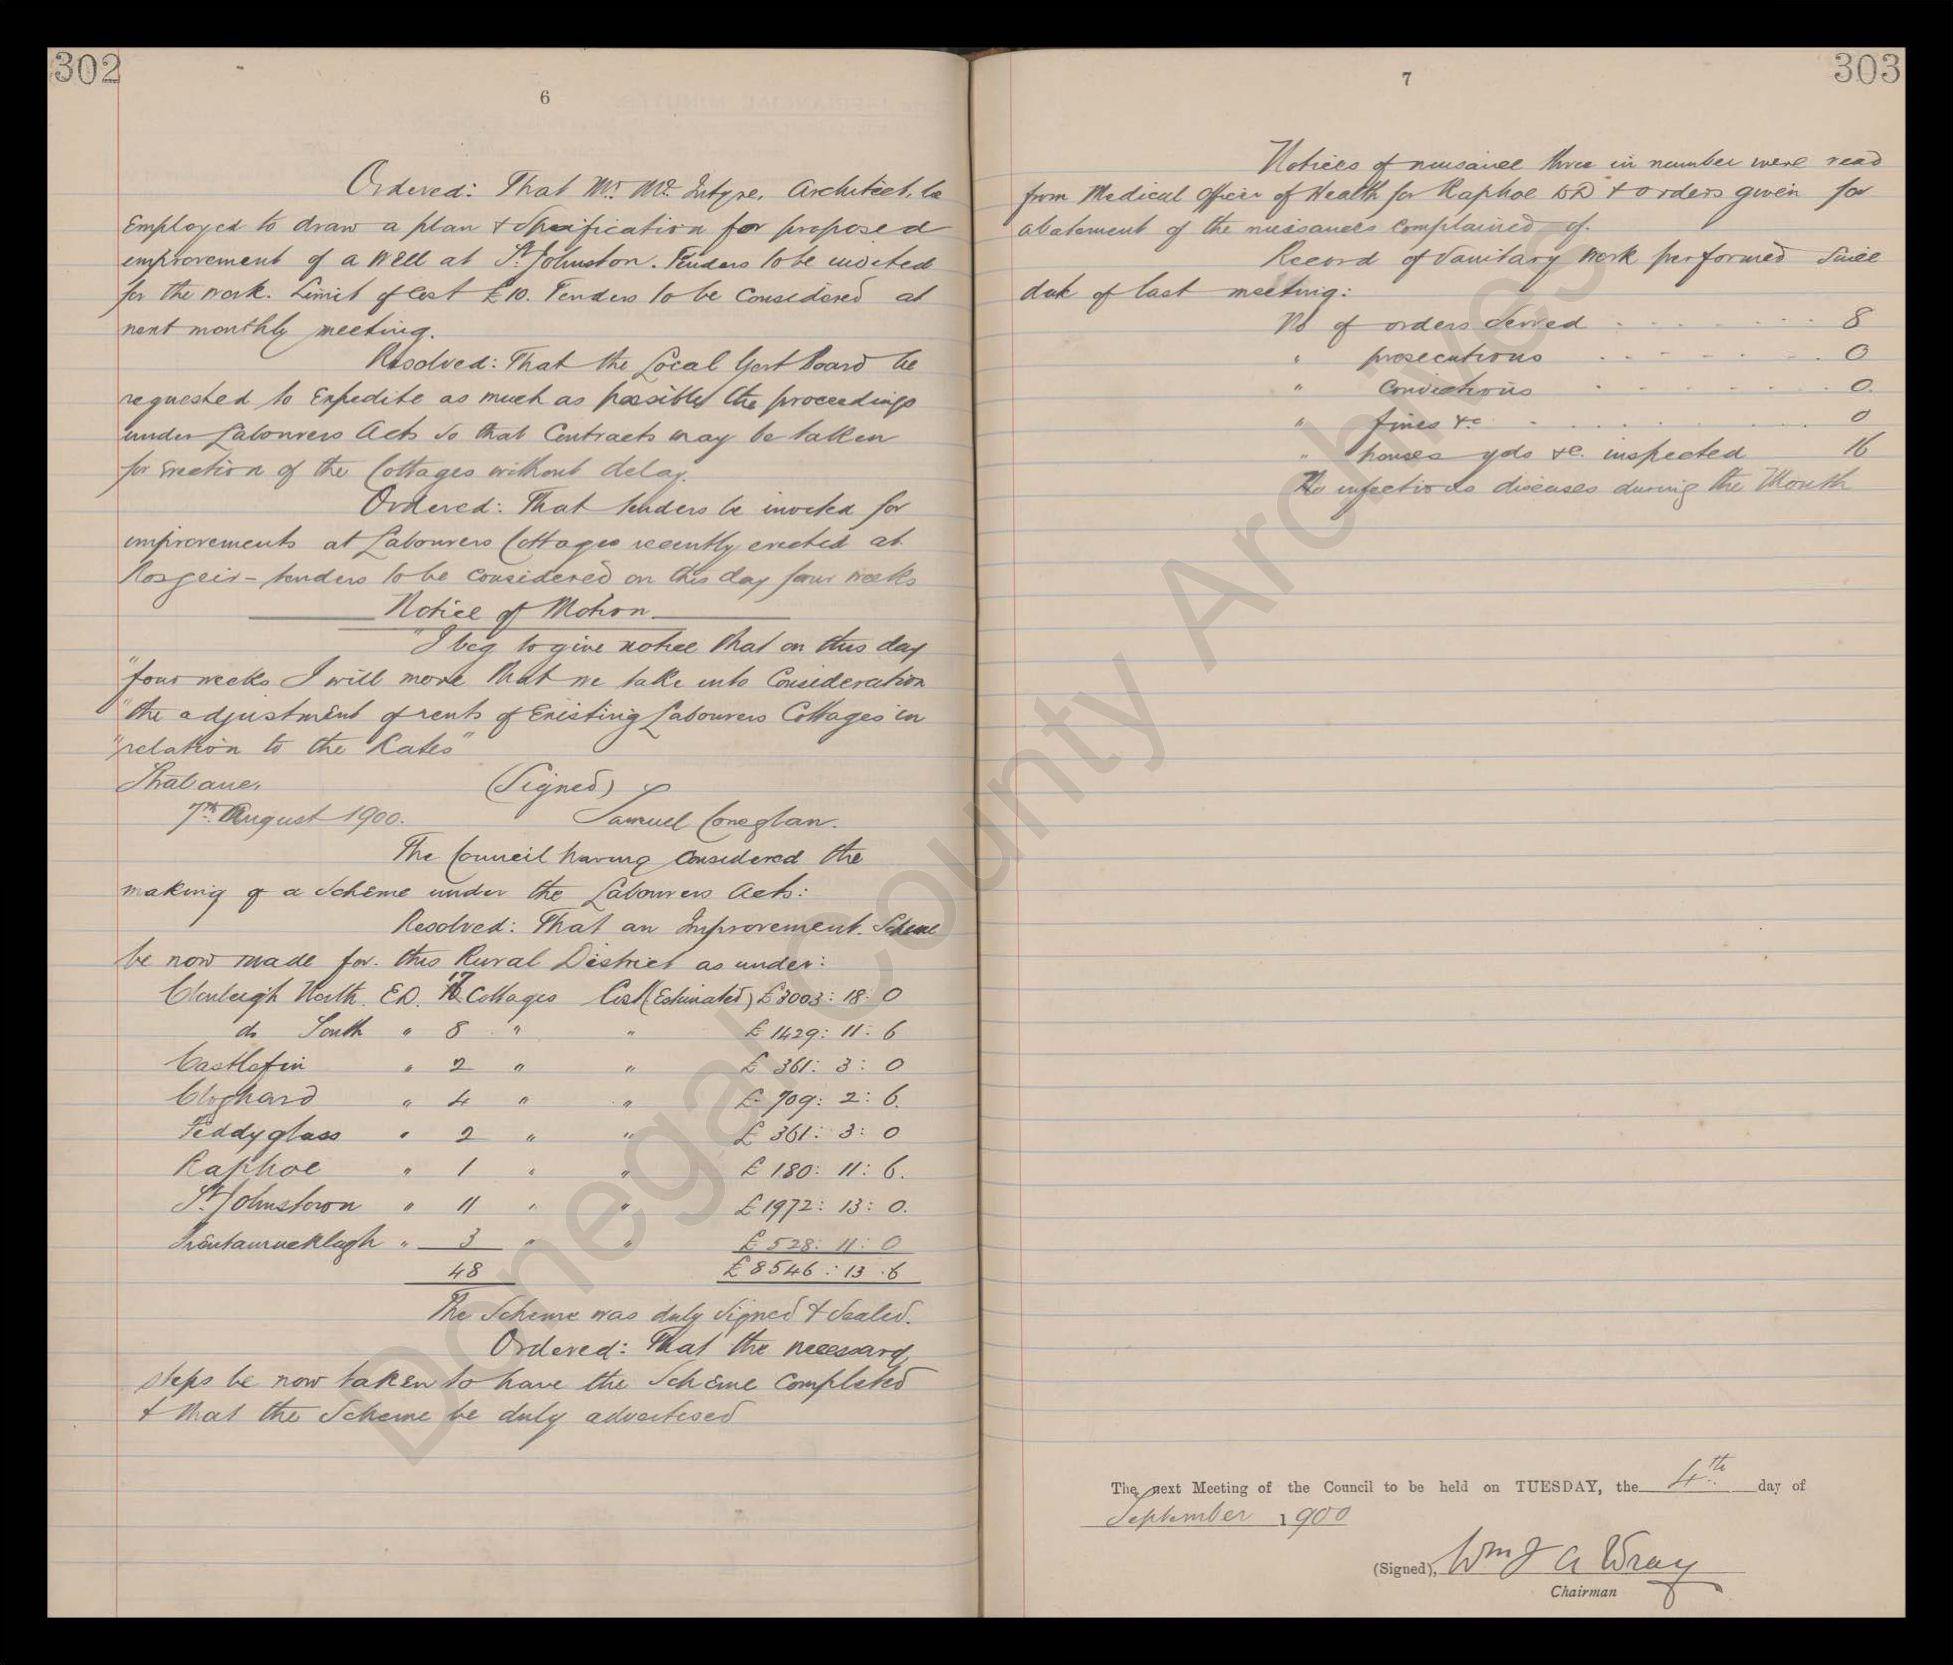 302
6
Ordered: That Mr. Mc.Intyre, Architect, be
employed to draw a plan & Specification for proposed
improvement of a well at St. Johnston. Tenders to be invited
for the work. Limit of Cost £10. Tenders to be Considered at
next monthly meeting.
Resolved: That the Local Govt Board be
requested to Expedite as much as possible the proceedings
under Labourers Acts so that Contracts may be taken
for Erection of the Cottages without delay.
Ordered: That tenders be invited for
improvements at Labourers Cottages recently erected at
Rosgeir - tenders to be considered on this day four weeks
Notice of Motion.
"I beg to give notice that on this day
"four weeks I will move that we take into Consideration
"the adjustment of rents of Existing Labourers Cottages in
"relation to the Rates"
Strabane,
(Signed)
7th. August 1900.
Samuel Coneglan.
The Council having Considered the
making of a Scheme under the Labourers Acts:
Resolved: That an Improvement Scheme
be now made for this Rural District as under:
Clonleigh North E.D. 17 Cottages Cost (Estimated) £3003: 18: 0
do South " 8 " " £ 1429: 11: 6
Castlefin " 2 " " £ 361: 3: 0
Cloghard " 4 " " £ 709: 2: 6.
Feddyglass " 2 " " £ 361: 3: 0
Raphoe " 1 " " £ 180: 11: 6.
St. Johnstown " 11 " " £1972: 13: 0.
Treantamucklagh " 3 " " £ 528: 11: 0
48 £8546: 13. 6
The Scheme was duly signed & sealed.
Ordered: That the necessary
steps be now taken to have the Scheme Completed
& that the Scheme be duly advertised
303
7
Notices of nuisance three in number were read
from Medical Officer of Health for Raphoe DD & orders given for
abatement of the nuisances complained of.
Record of Sanitary work performed since
date of last meeting:
No of orders served 8
" prosecutions 0
" Convictions 0.
" fines &c 0
" houses yds &c. inspected 16
No infectious diseases during the Month
The next Meeting of the Council to be held on TUESDAY, the 4th day of
September 1900
(Signed), Wm J A Wray
Chairman
Donegal County Archives